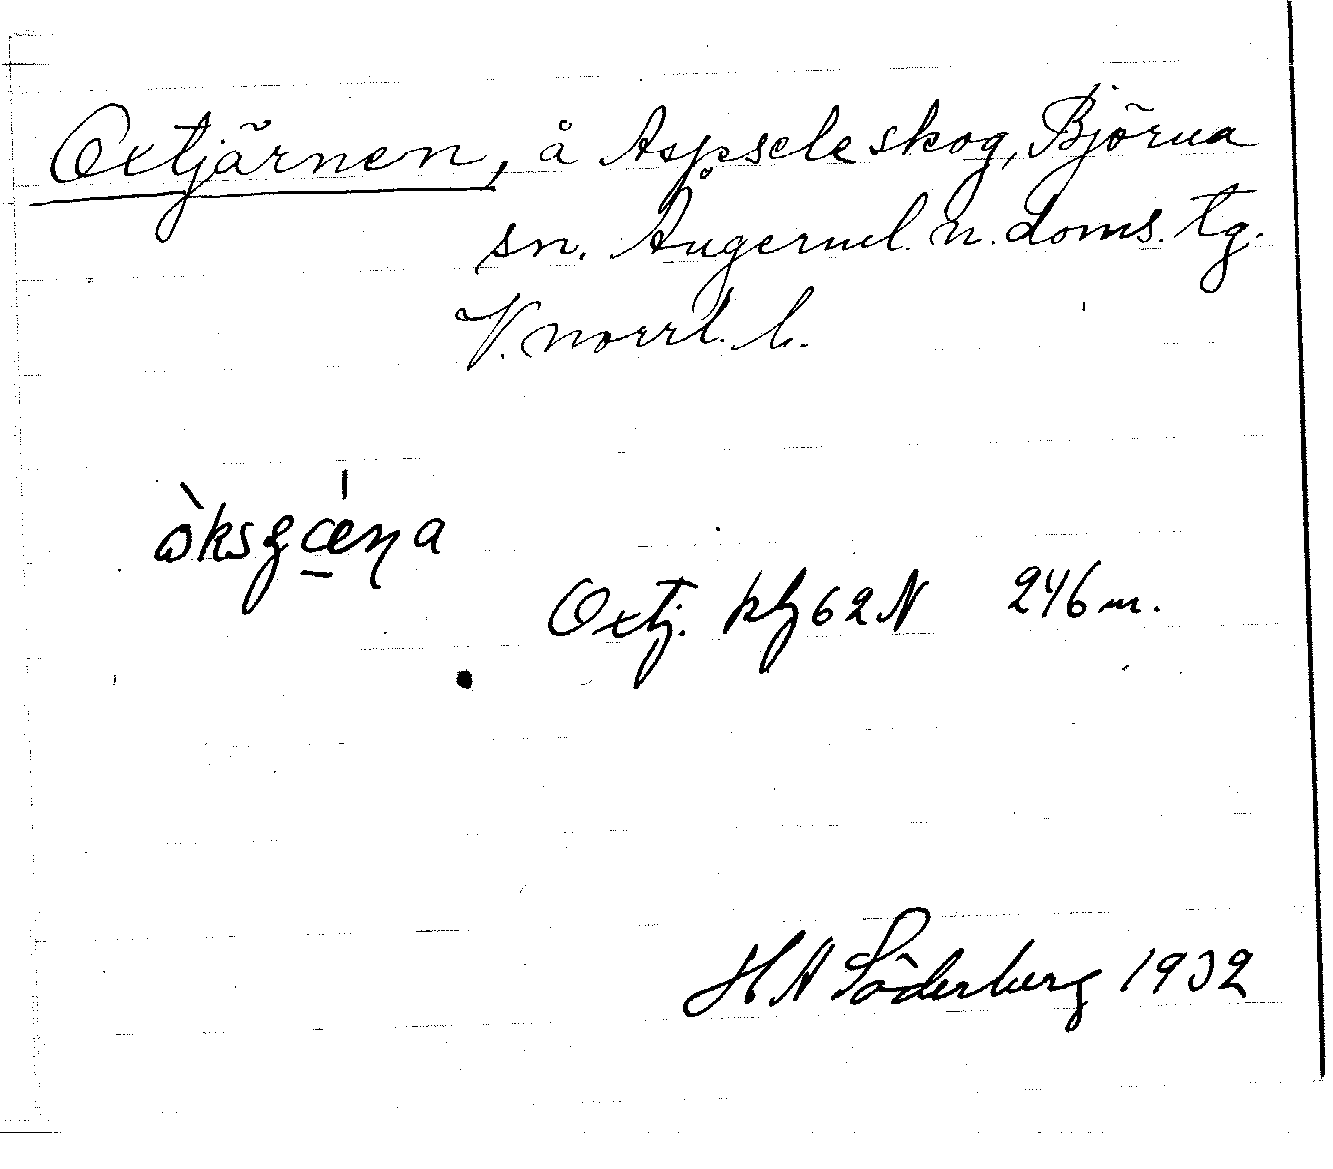 Oxtjärnen, å Aspsele skog, Björna
sn. Ångerml. n. doms. tg.
V. norrl. l.
òksʒǽṇa
Oxtj. 62 N 246 m.
H A Söderberg 1932